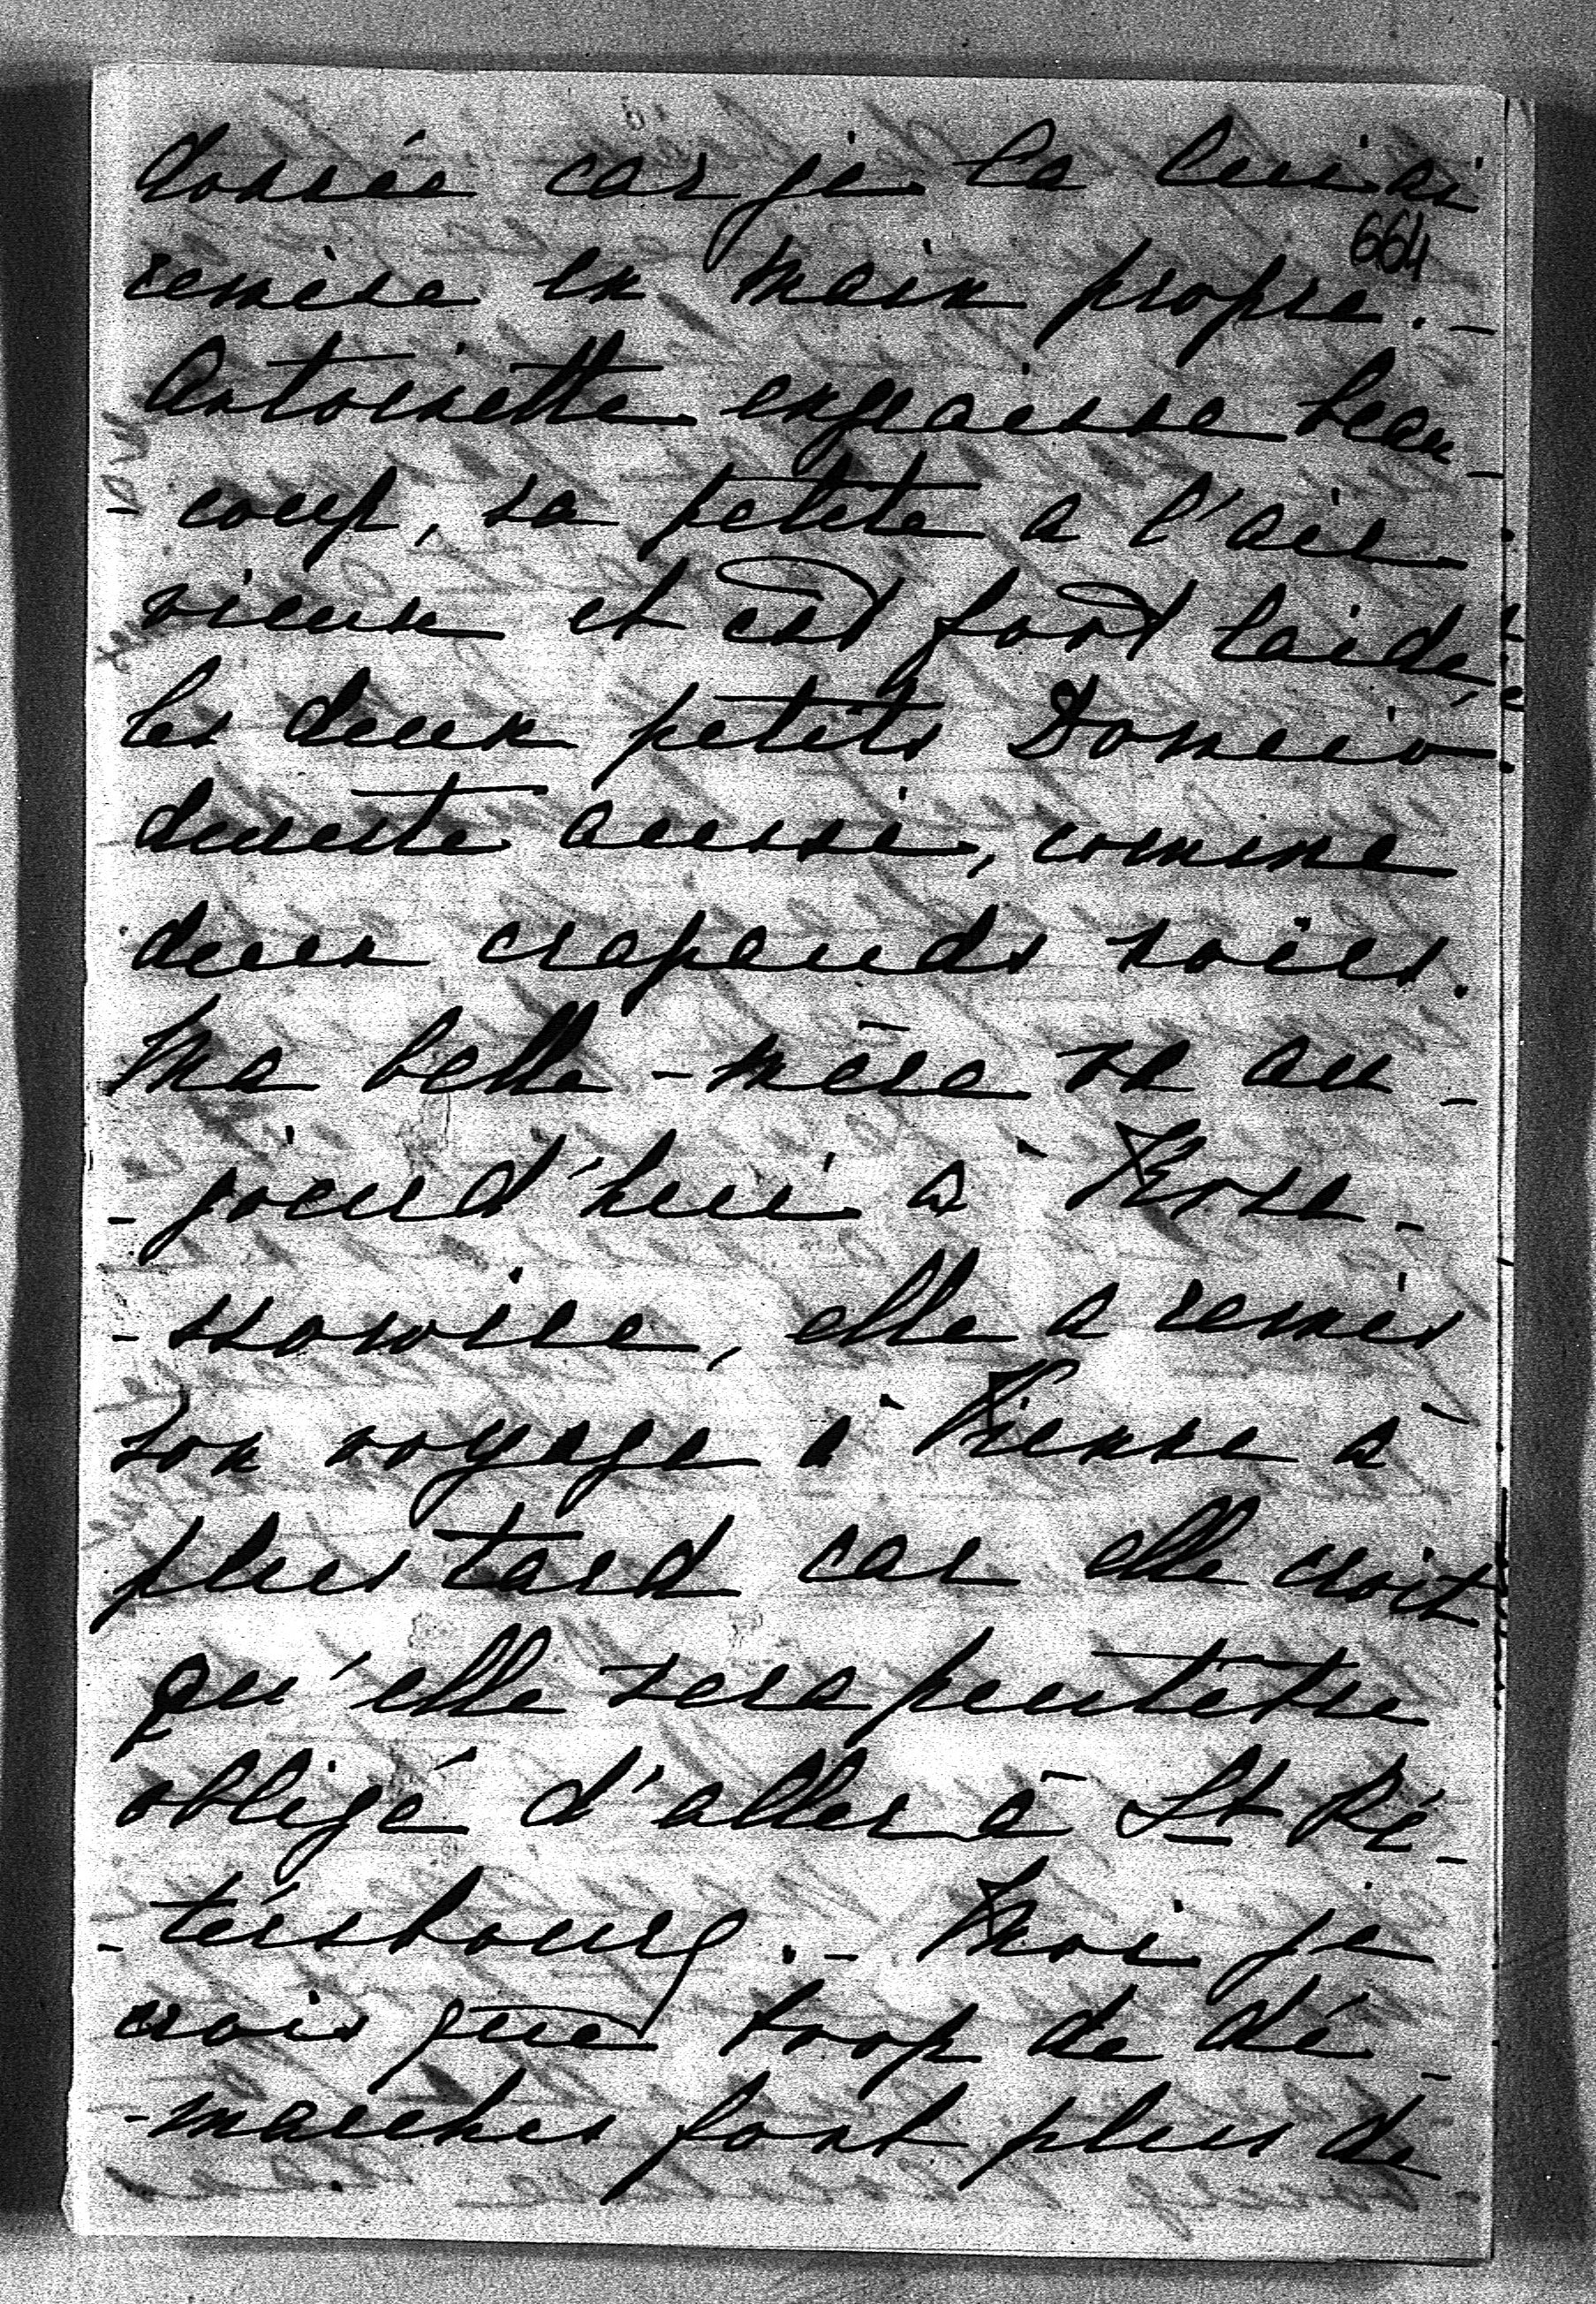 donnée car je la lui ai
664
remise en main propre. -
Antoinette engraisse beau-
- coup, sa petite a l'air
vieux et est fort laide,
les deux petits
aussi, comme
deux crapauds noirs.
Ma belle-mère va au-
- jourd'hui à
elle a remis
son voyage à Vienne à
plus tard car elle croit
qu'elle sera peutêtre
obligé d'aller à St Pé-
- tersbourg. - Moi je
crois que trop de dé-
- marches font plus de